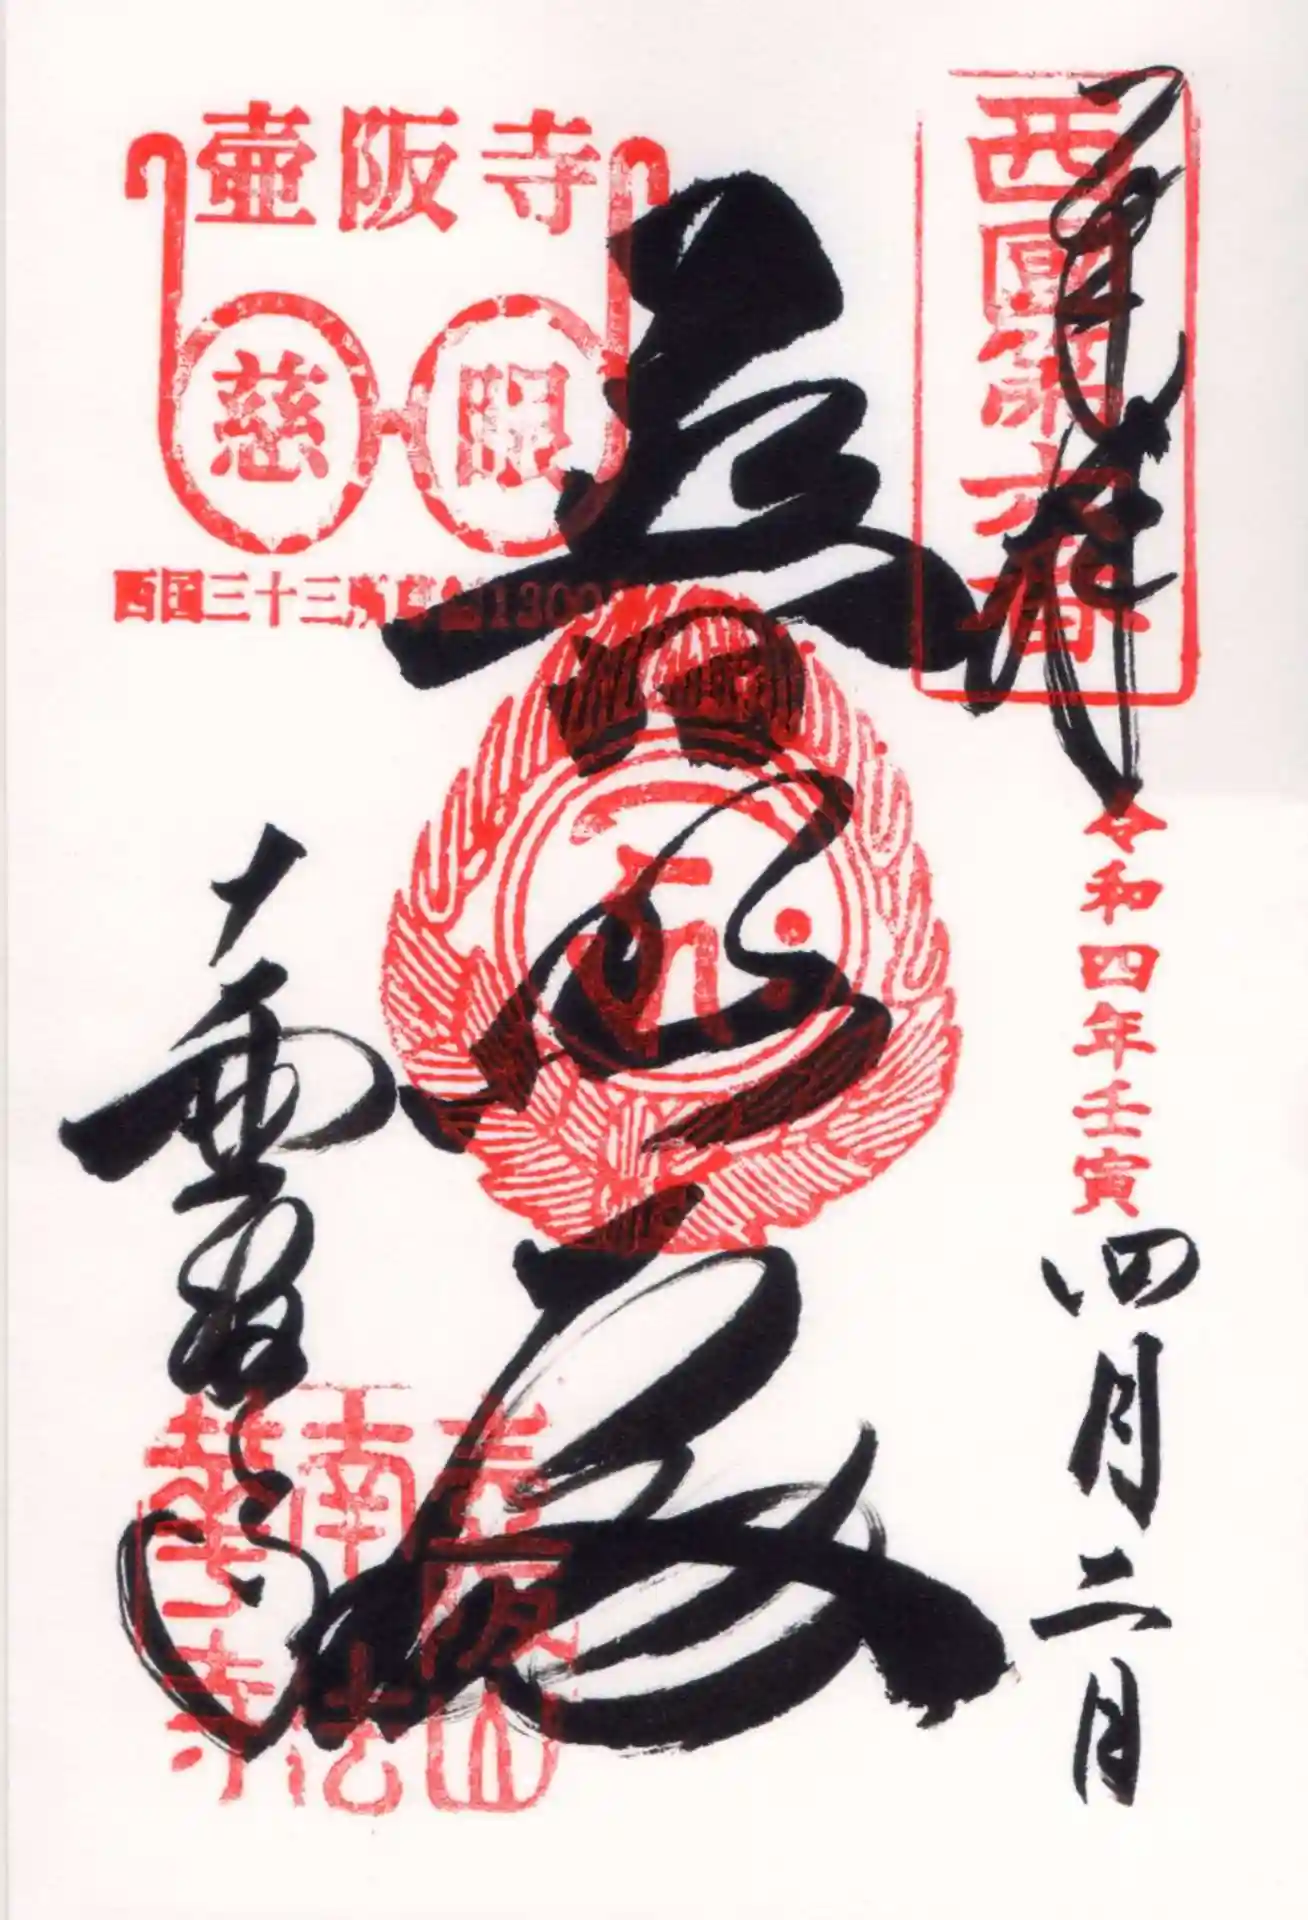 奉拝
西國第六番
令和四年壬寅
四月二日
普照殿
壺阪寺
慈眼
西国三十三所草創1300
壺阪山
南法
華寺